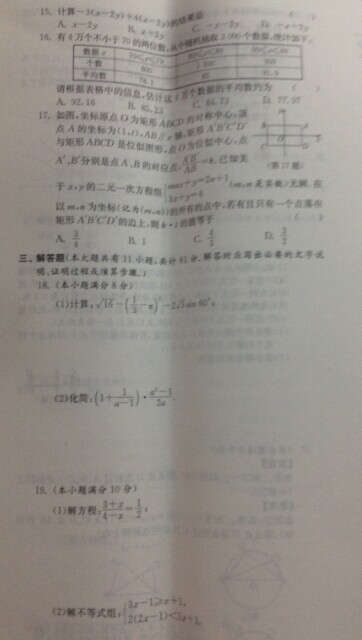 15. 计算-3(x-2y)+4(x-2y)的结果是 ( )
A. x-2y B. x+2y C. -x-2y D. -x+2y
16. 有4万个不小于70的两位数,从中随机抽取3 000个数据,统计如下:
数据x
个数 800 1 300 900
平均数 78.1 85 91.9
请根据表格中的信息,估计这4万个数据的平均数约为 ( )
A. 92.16 B. 85.23 C. 84.73 D. 77.97
17. 如图,坐标原点O为矩形ABCD的对称中心,顶
点A的坐标为(1,t),AB∥x轴,矩形A'B'C'D'
与矩形ABCD是位似图形,点O为位似中心,点
A',B'分别是点A、B的对应点, =k. 已知关
(第17题)
于x,y的二元一次方程组 (m,n是实数)无解,在
3x+y=4
以m,n为坐标(记为(m,n))的所有的点中,若有且只有一个点落在
矩形A'B'C'D'的边上,则k·t的值等于 ( )
A. 3/4 B. 1 C. 4/3 D. 3/2
三、解答题(本大题共有11小题,共计81分.解答时应写出必要的文字说
明、证明过程或演算步骤.)
18. (本小题满分8分)
(1)计算:√16-(1/3-π)⁰-2√3sin 60°;
(2)化简:(1+1/(a-1))·(a²-1)/2a.
19. (本小题满分10分)
(1)解方程:(3+x)/(4-x)=1/2;
(2)解不等式组:{3x-1≥x+1,
2(2x-1)<5x+1.